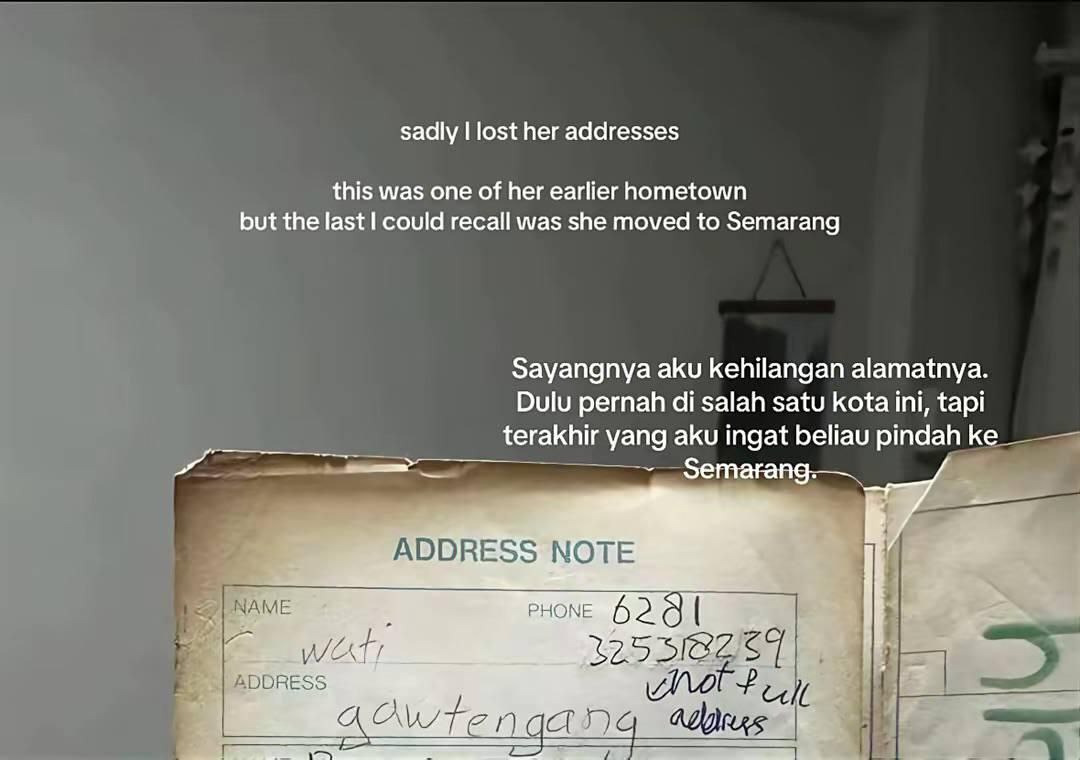 sadly I lost her addresses
this was one of her earlier hometown
but the last I could recall was she moved to Semarang
Sayangnya aku kehilangan alamatnya.
Dulu pernah di salah satu kota ini, tapi
terakhir yang aku ingat beliau pindah ke
Semarang.
ADDRESS NOTE
NAME
PHONE 6281
wati
325318239
ADDRESS
not full
gawtengang
address